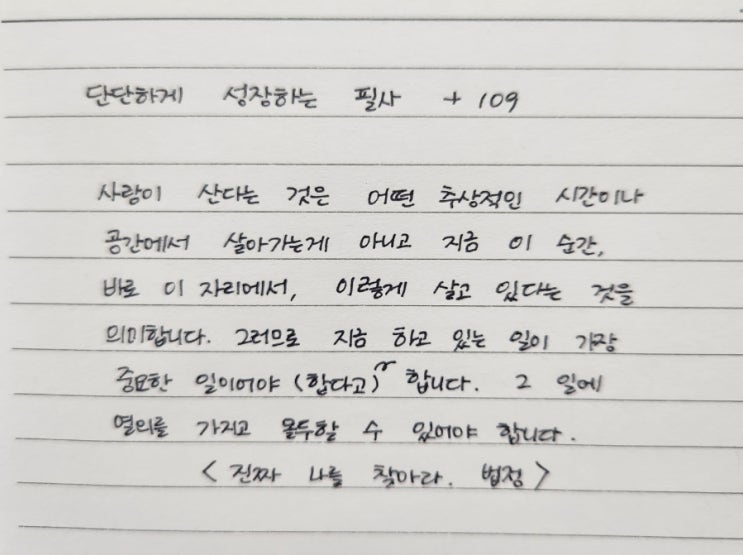 단단하게 성장하는 필사 + 109
사람이 산다는 것은 어떤 추상적인 시간이나
공간에서 살아가는게 아니고 지금 이 순간,
바로 이 자리에서, 이렇게 살고 있다는 것을
의미합니다. 그러므로 지금 하고 있는 일이 가장
중요한 일이어야 (합다고) 합니다. 그 일에
열의를 가지고 몰두할 수 있어야 합니다.
< 진짜 나를 찾아라. 법정 >